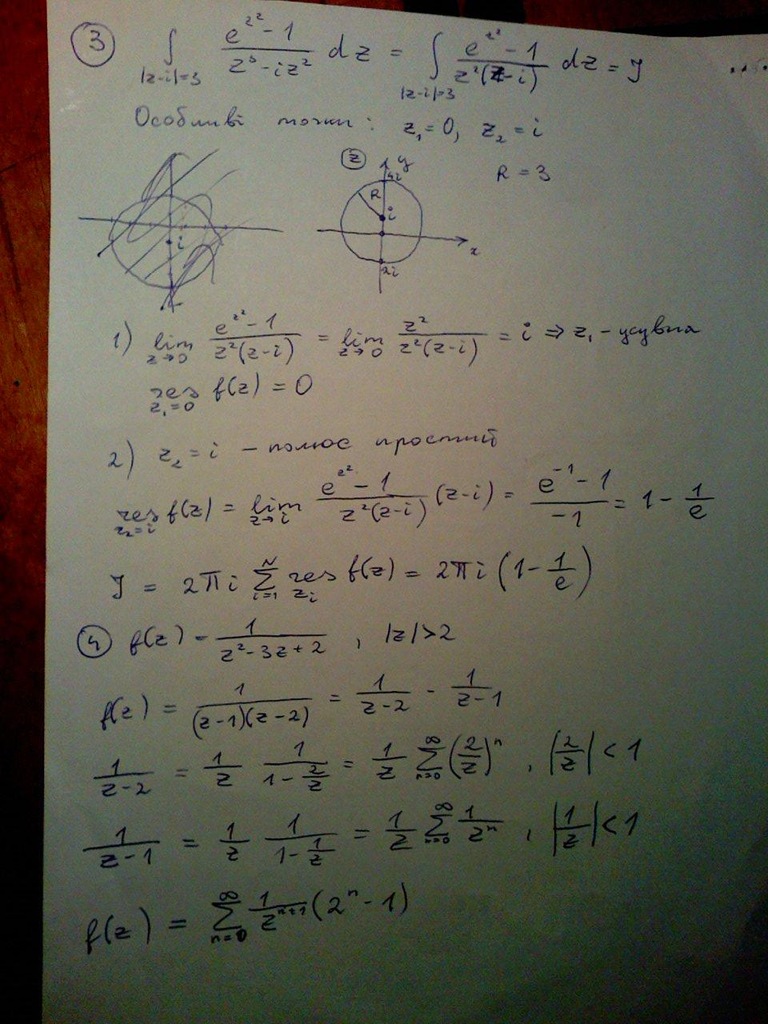 ③ ∫_{|z-i|=3} (e^{z²}-1)/(z³-iz²) dz = ∫_{|z-i|=3} (e^{z²}-1)/(z²(z-i)) dz = J
Особливі точки: z₁=0, z₂=i
z y 4i R i x 2i
R=3
i
1) lim_{z→0} (e^{z²}-1)/(z²(z-i)) = lim_{z→0} z²/(z²(z-i)) = i ⇒ z₁ - усувна
res_{z₁=0} f(z) = 0
2) z₂=i - полюс простий
res_{z₂=i} f(z) = lim_{z→i} (e^{z²}-1)/(z²(z-i)) (z-i) = (e^{-1}-1)/(-1) = 1 - 1/e
J = 2πi ∑_{i=1}^{N} res_{z_i} f(z) = 2πi (1 - 1/e)
④ f(z) = 1/(z²-3z+2), |z|>2
f(z) = 1/((z-1)(z-2)) = 1/(z-2) - 1/(z-1)
1/(z-2) = 1/z 1/(1-2/z) = 1/z ∑_{n=0}^{∞} (2/z)ⁿ, |2/z|<1
1/(z-1) = 1/z 1/(1-1/z) = 1/z ∑_{n=0}^{∞} 1/zⁿ, |1/z|<1
f(z) = ∑_{n=0}^{∞} 1/z^{n+1} (2ⁿ-1)